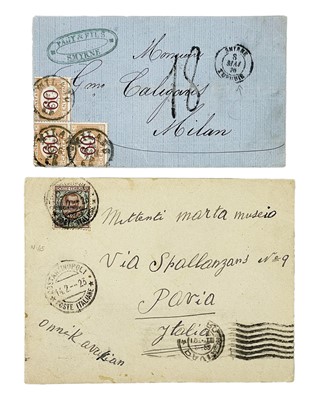 PAGY & FILS
SMYRNE
Monsieur
18
SMYRNE
8
MAI
TURQUIE
60
60
60
MILANO
Milan
Mittenti marta museio
Via Spallanzans No 9
Pavia
Italia
COSTANTINOPOLI
14.2--25
POSTE ITALIANE
Onnik avakian